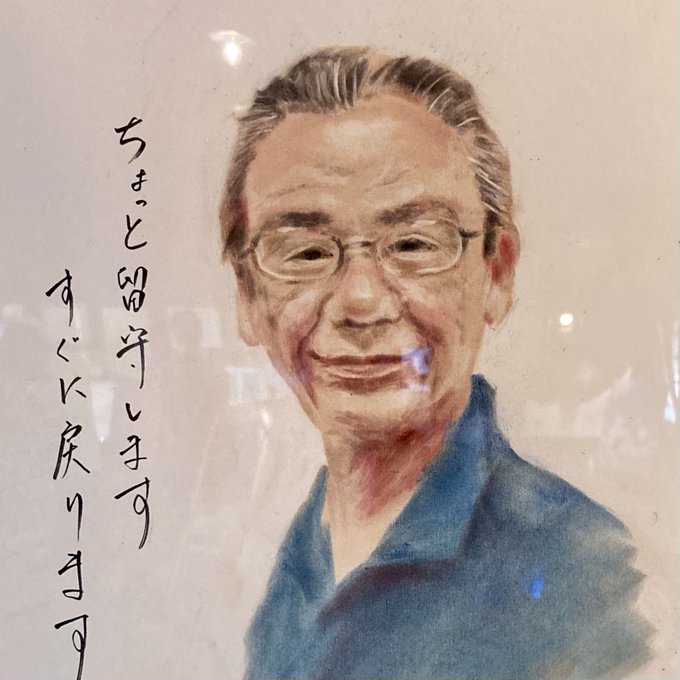 ちょっと留守します
すぐに戻ります